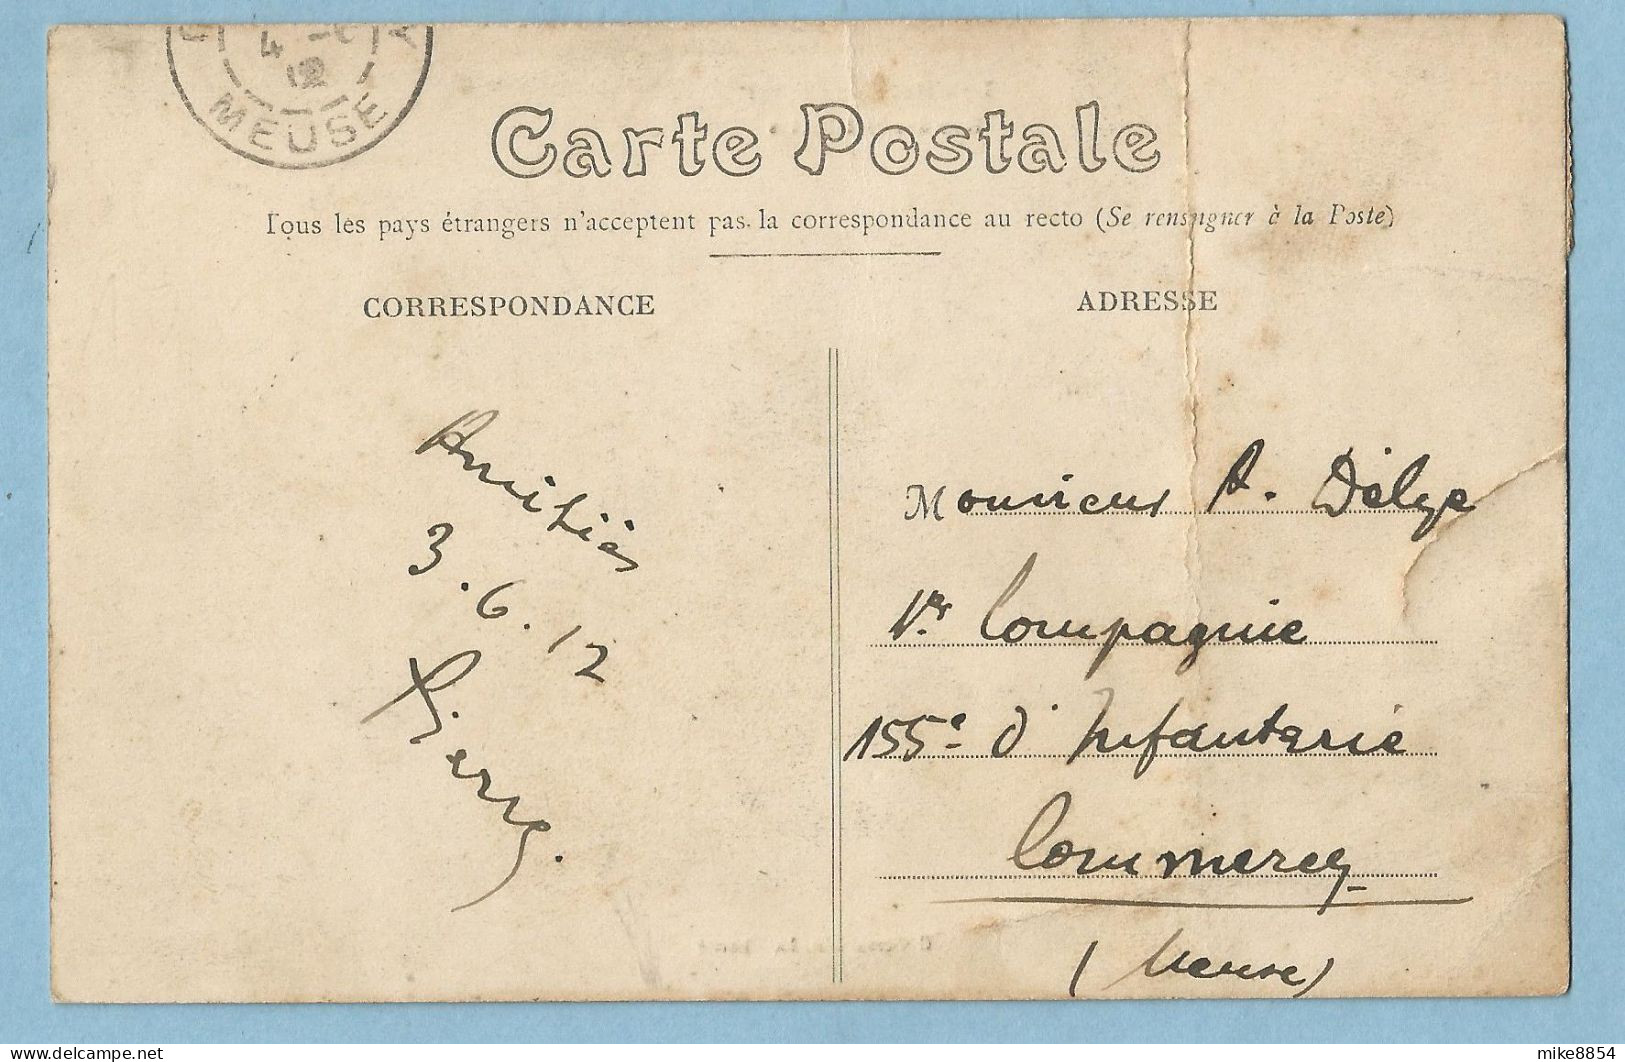 4
12
MEUSE
Carte Postale
Tous les pays étrangers n'acceptent pas la correspondance au recto (Se renseigner à la Poste)
CORRESPONDANCE
ADRESSE
Amitiés
3.6.12
Monsieur A. Delge
1re Compagnie
155e d'Infanterie
Commercy
(Meuse)
delcampe.net
mike8854